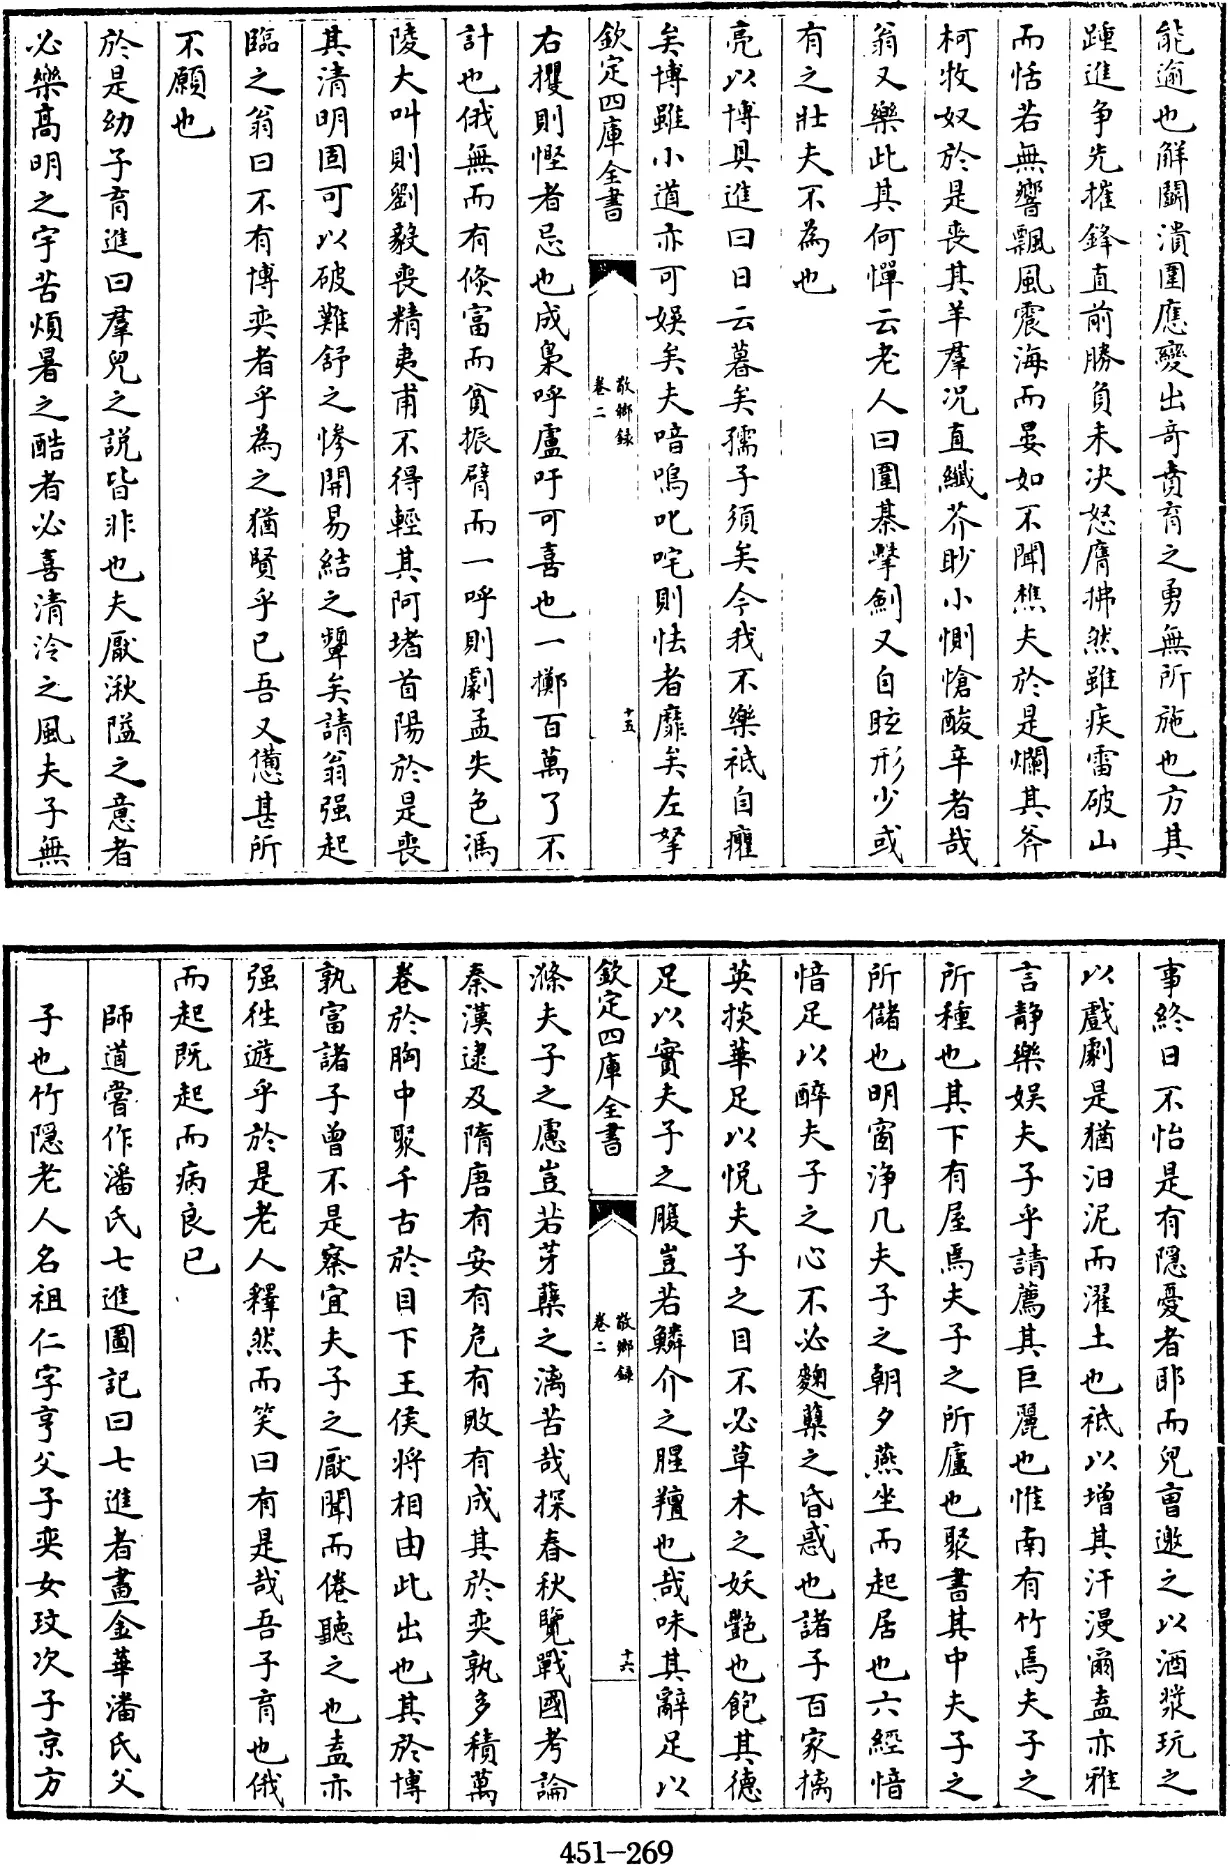 能逾也解鬭潰圍應變出奇賁育之勇無所施也方其
踵進争先摧鋒直前勝負未決怒膺拂然雖疾雷破山
而恬若無響飄風震海而晏如不聞樵夫於是爛其斧
柯牧奴於是喪其羊羣况直纖芥眇小惻愴酸辛者哉
翁又樂此其何憚云老人曰圍棊擊劍又自眩形少或
有之壯夫不為也
亮以博具進曰日云暮矣孺子須矣今我不樂祗自癯
矣博雖小道亦可娱矣夫喑嗚叱咤則怯者靡矣左拏
欽定四庫全書
敬鄉録
卷二
十五
右攫則慳者忌也成梟呼盧吁可喜也一擲百萬了不
計也俄無而有倐富而貧振臂而一呼則劇孟失色馮
陵大叫則劉毅喪精夷甫不得輕其阿堵首陽於是喪
其清明固可以破難舒之慘開易結之顰矣請翁强起
臨之翁曰不有博奕者乎為之猶賢乎已吾又憊甚所
不願也
於是幼子育進曰羣兒之説皆非也夫厭湫隘之意者
必樂高明之宇苦煩暑之酷者必喜清泠之風夫子無
事終日不怡是有隠憂者耶而兒曺邀之以酒漿玩之
以戲劇是猶汩泥而濯土也祗以增其汗漫爾盍亦雅
言静樂娱夫子乎請薦其巨麗也惟南有竹焉夫子之
所種也其下有屋焉夫子之所廬也聚書其中夫子之
所儲也明窗浄几夫子之朝夕燕坐而起居也六經愔
愔足以醉夫子之心不必麴糵之昏惑也諸子百家摛
英掞華足以悦夫子之目不必草木之妖艶也飽其德
足以實夫子之腹豈若鱗介之腥羶也哉味其辭足以
欽定四庫全書
敬鄉録
卷二
十六
滌夫子之慮豈若芽糵之漓苦哉探春秋覽戰國考論
秦漢逮及隋唐有安有危有敗有成其於奕孰多積萬
卷於胸中聚千古於目下王侯将相由此出也其於博
孰富諸子曾不是察宜夫子之厭聞而倦聽之也盍亦
强徃遊乎於是老人釋然而笑曰有是哉吾子育也俄
而起既起而病良已
師道嘗作潘氏七進圖記曰七進者畫金華潘氏父
子也竹隠老人名祖仁字亨父子奕女玟次子京方
451-269